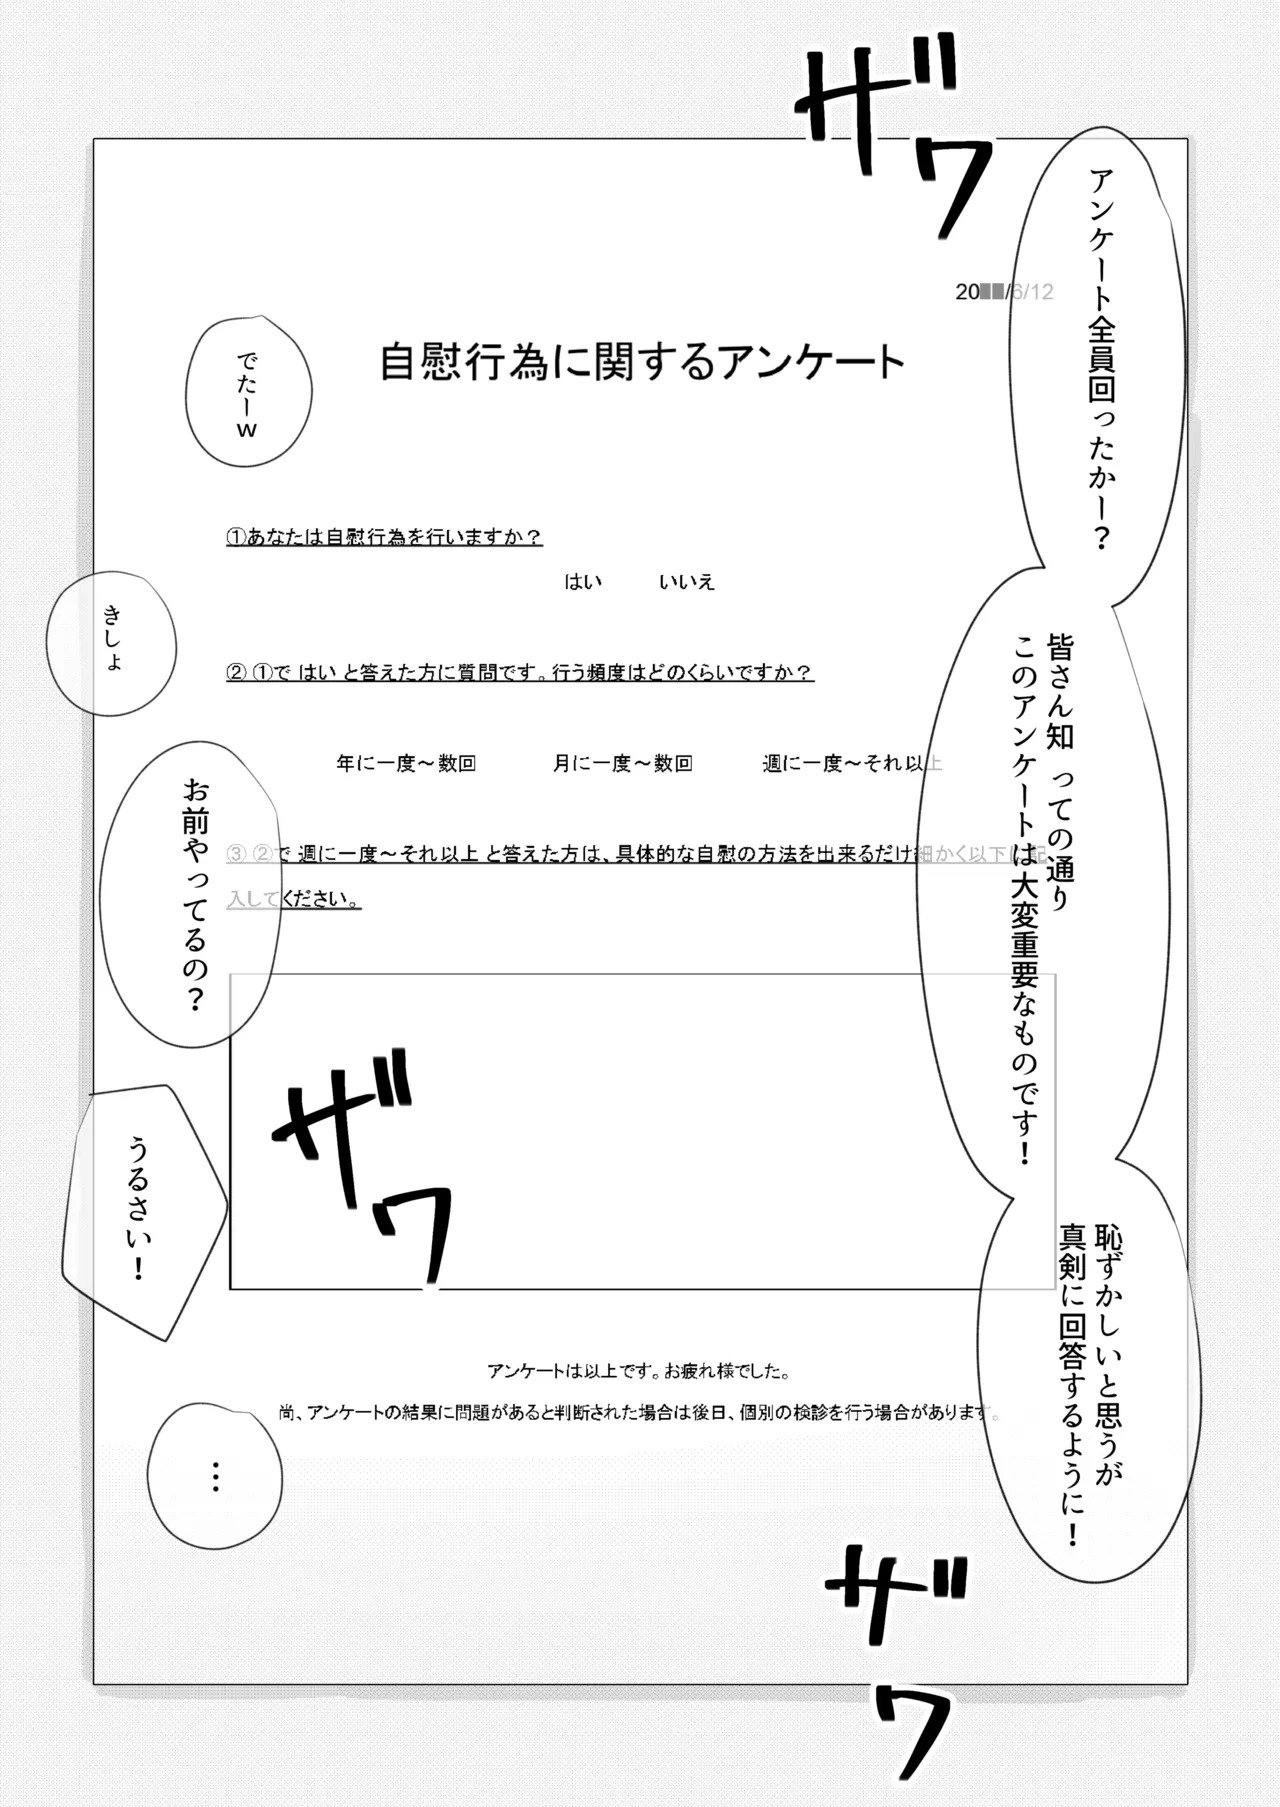 ザワ
アンケート全員回ったかー?
皆さん知っての通り
このアンケートは大変重要なものです!
恥ずかしいと思うが
真剣に回答するように!
20██/6/12
自慰行為に関するアンケート
でたーw
①あなたは自慰行為を行いますか?
はい いいえ
きしょ
② ①で はい と答えた方に質問です。行う頻度はどのくらいですか?
年に一度～数回 月に一度～数回 週に一度～それ以上
お前やってるの?
③ ②で 週に一度～それ以上 と答えた方は、具体的な自慰の方法を出来るだけ細かく以下に記
入してください。
ザワ
うるさい!
アンケートは以上です。お疲れ様でした。
尚、アンケートの結果に問題があると判断された場合は後日、個別の検診を行う場合があります。
…
ザワ